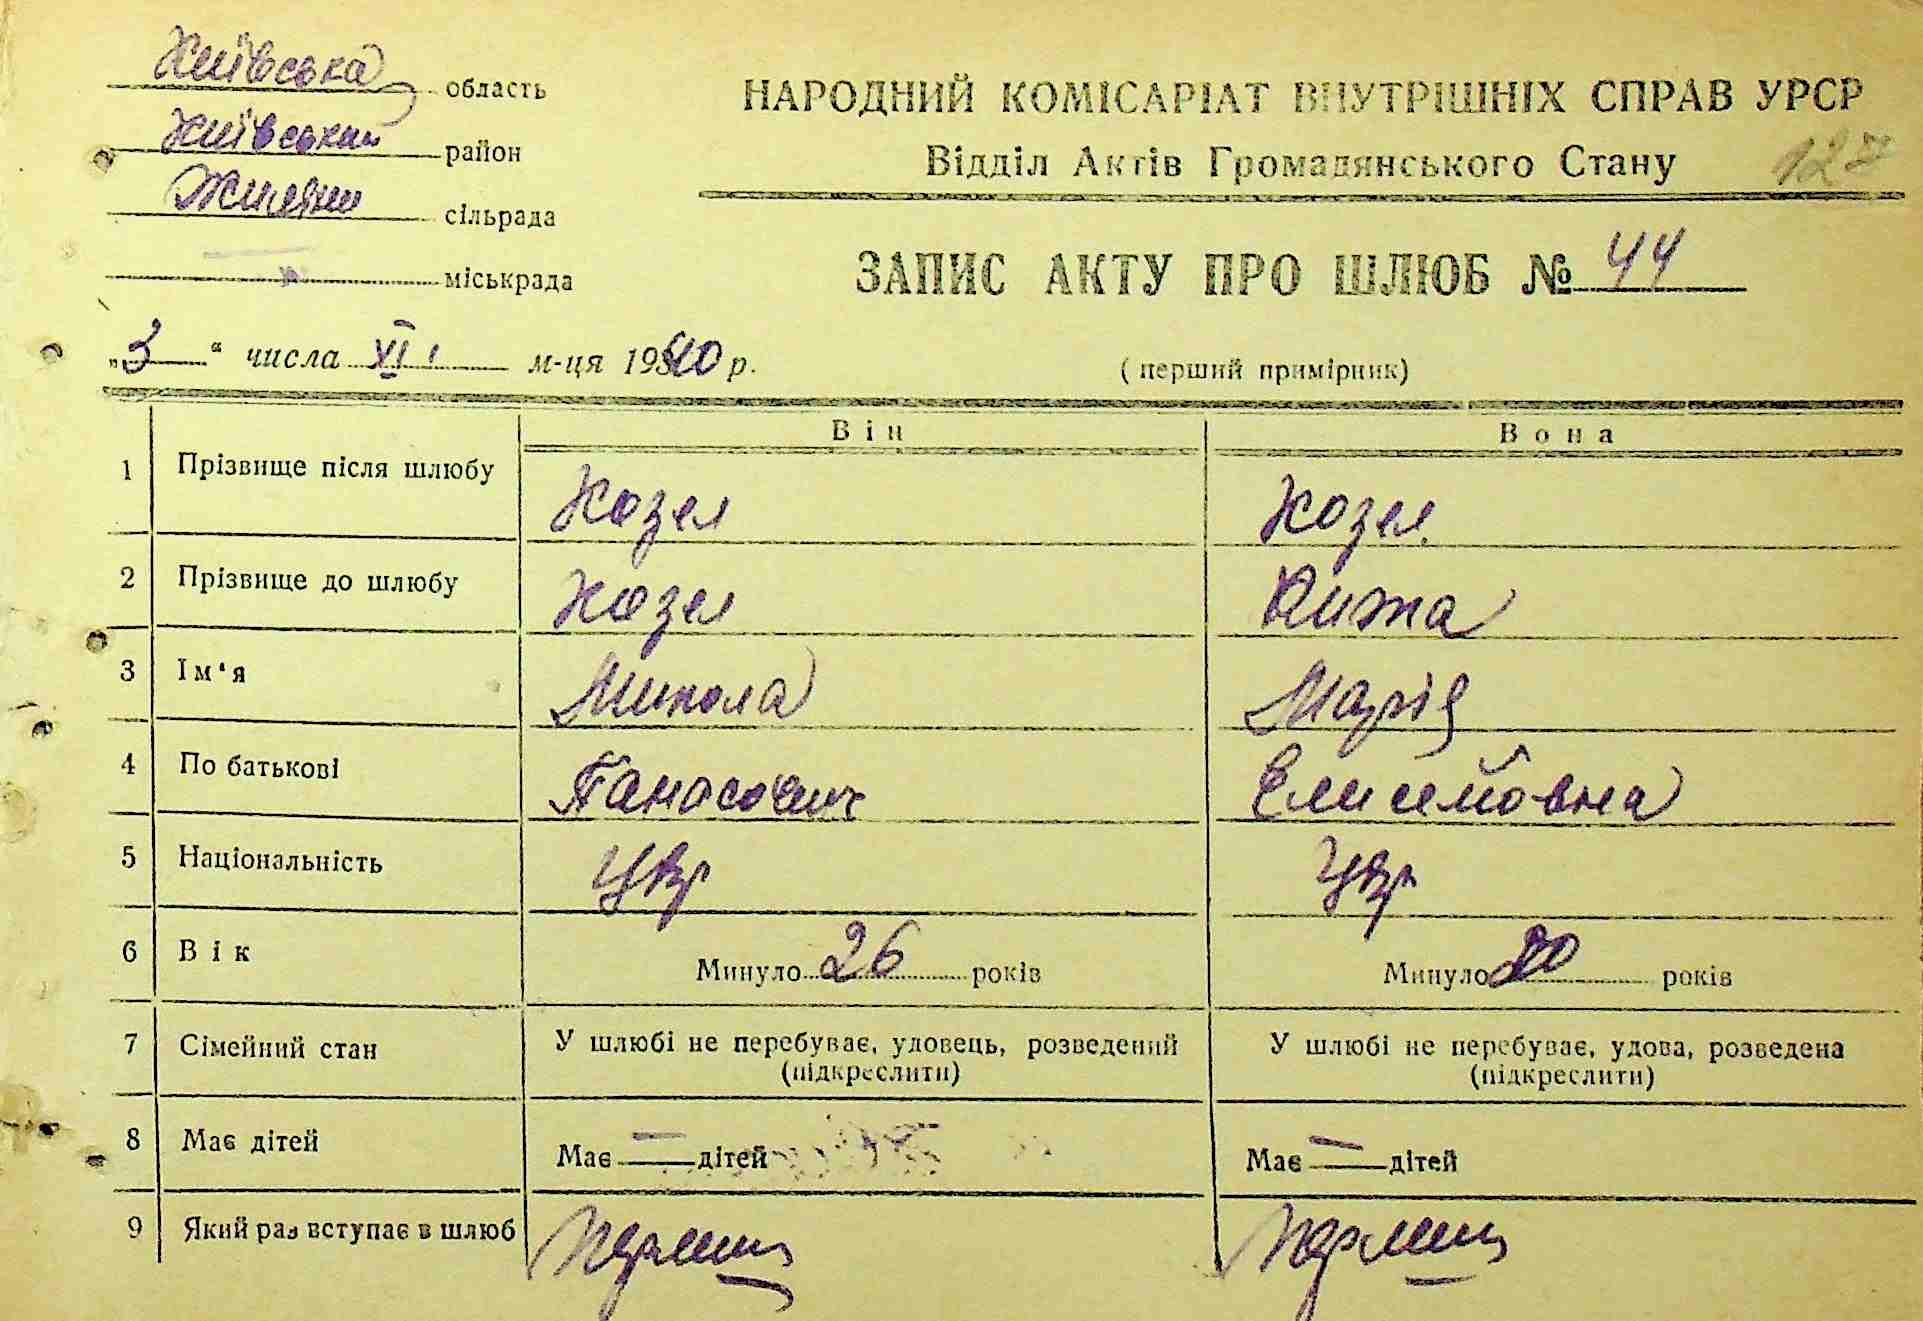 Київська область
Київський район
Жиляни сільрада
міськрада
НАРОДНИЙ КОМІСАРІАТ ВНУТРІШНІХ СПРАВ УРСР
Відділ Актів Громадянського Стану
127
ЗАПИС АКТУ ПРО ШЛЮБ № 44
„3“ числа XI м-ця 1940 р.
(перший примірник)
Він Вона
1 Прізвище після шлюбу Козел Козел
2 Прізвище до шлюбу Козел Кижа
3 Ім‘я Микола Марія
4 По батькові Панасович Елисейовна
5 Національність Укр Укр
6 Вік Минуло 26 років Минуло 20 років
7 Сімейний стан У шлюбі не перебуває, уловець, розведений У шлюбі не перебуває, удова, розведена
(підкреслити) (підкреслити)
8 Має дітей Має — дітей Має — дітей
9 Який раз вступає в шлюб